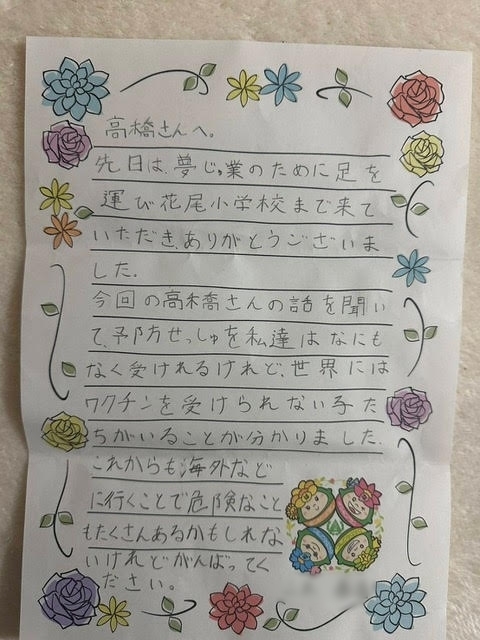 高橋さんへ。
先日は、夢じゅ業のために足を
運び花尾小学校まで来て
いただき、ありがとうございま
した。
今回の高橋さんの話を聞い
て、予防せっしゅを私達はなにも
なく受けれるけれど、世界には
ワクチンを受けられない子た
ちがいることが分かりました。
これからも海外など
に行くことで危険なこと
もたくさんあるかもしれな
いけれどがんばってく
ださい。